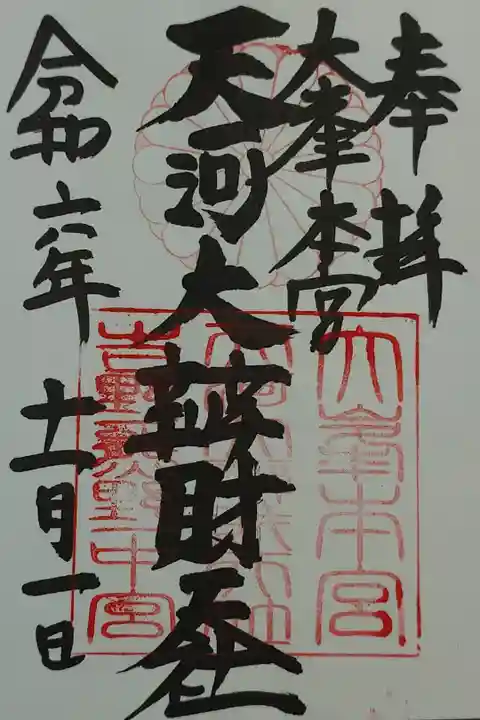 奉拝
大峯本宮
天河大辨財天社
令和六年 十一月一日
大峯本宮
吉野熊野中宮